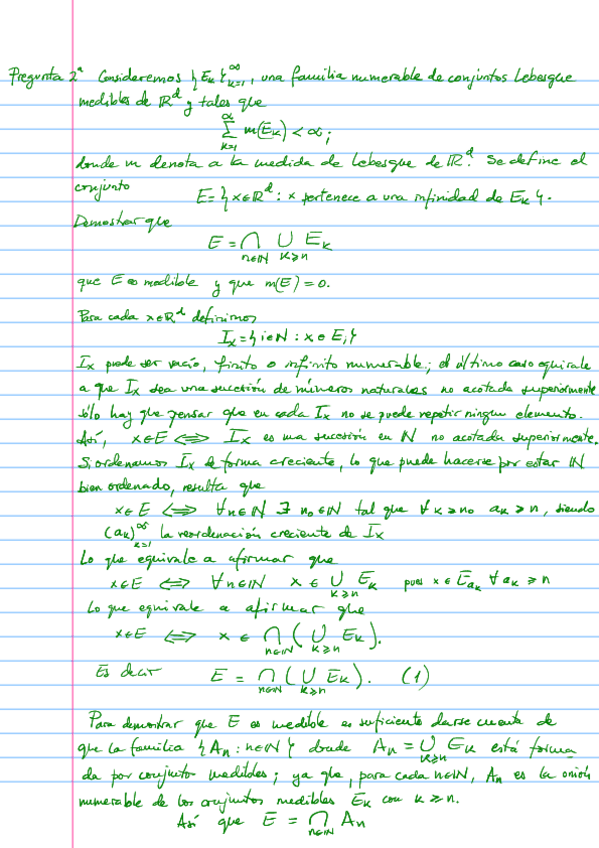 Pregunta 2ª Consideremos {Eₖ}ₖ₌₁^∞, una familia numerable de conjuntos Lebesgue
medibles de ℝᵈ y tales que
∑ₖ₌₁^∞ m(Eₖ) < ∞;
donde m denota a la medida de Lebesgue de ℝᵈ. Se define el
conjunto E = {x∈ℝᵈ : x pertenece a una infinidad de Eₖ}.
Demostrar que
E = ⋂_{n∈ℕ} ⋃_{k≥n} Eₖ
que E es medible y que m(E)=0.
Para cada x∈ℝᵈ definimos
Iₓ = {i∈ℕ : x∈Eᵢ}
Iₓ puede ser vacío, finito o infinito numerable; el último caso equivale
a que Iₓ sea una sucesión de números naturales no acotada superiormente
sólo hay que pensar que en cada Iₓ no se puede repetir ningun elemento.
Así, x∈E ⟺ Iₓ es una sucesión en ℕ no acotada superiormente.
Si ordenamos Iₓ de forma creciente, lo que puede hacerse por estar ℕ
bien ordenado, resulta que
x∈E ⟺ ∀n∈ℕ ∃ n₀∈ℕ tal que ∀ k≥n₀ aₖ≥n, siendo
(aₖ)ₖ₌₁^∞ la reordenación creciente de Iₓ
Lo que equivale a afirmar que
x∈E ⟺ ∀n∈ℕ x∈ ⋃_{k≥n} Eₖ pues x∈E_{aₖ} ∀ aₖ≥n
Lo que equivale a afirmar que
x∈E ⟺ x ∈ ⋂_{n∈ℕ} (⋃_{k≥n} Eₖ).
Es decir E = ⋂_{n∈ℕ} (⋃_{k≥n} Eₖ). (1)
Para demostrar que E es medible es suficiente darse cuenta de
que la familia {Aₙ : n∈ℕ} donde Aₙ = ⋃_{k≥n} Eₖ está forma
da por conjuntos medibles; ya que, para cada n∈ℕ, Aₙ es la unión
numerable de los conjuntos medibles Eₖ con k≥n.
Así que E = ⋂_{n∈ℕ} Aₙ